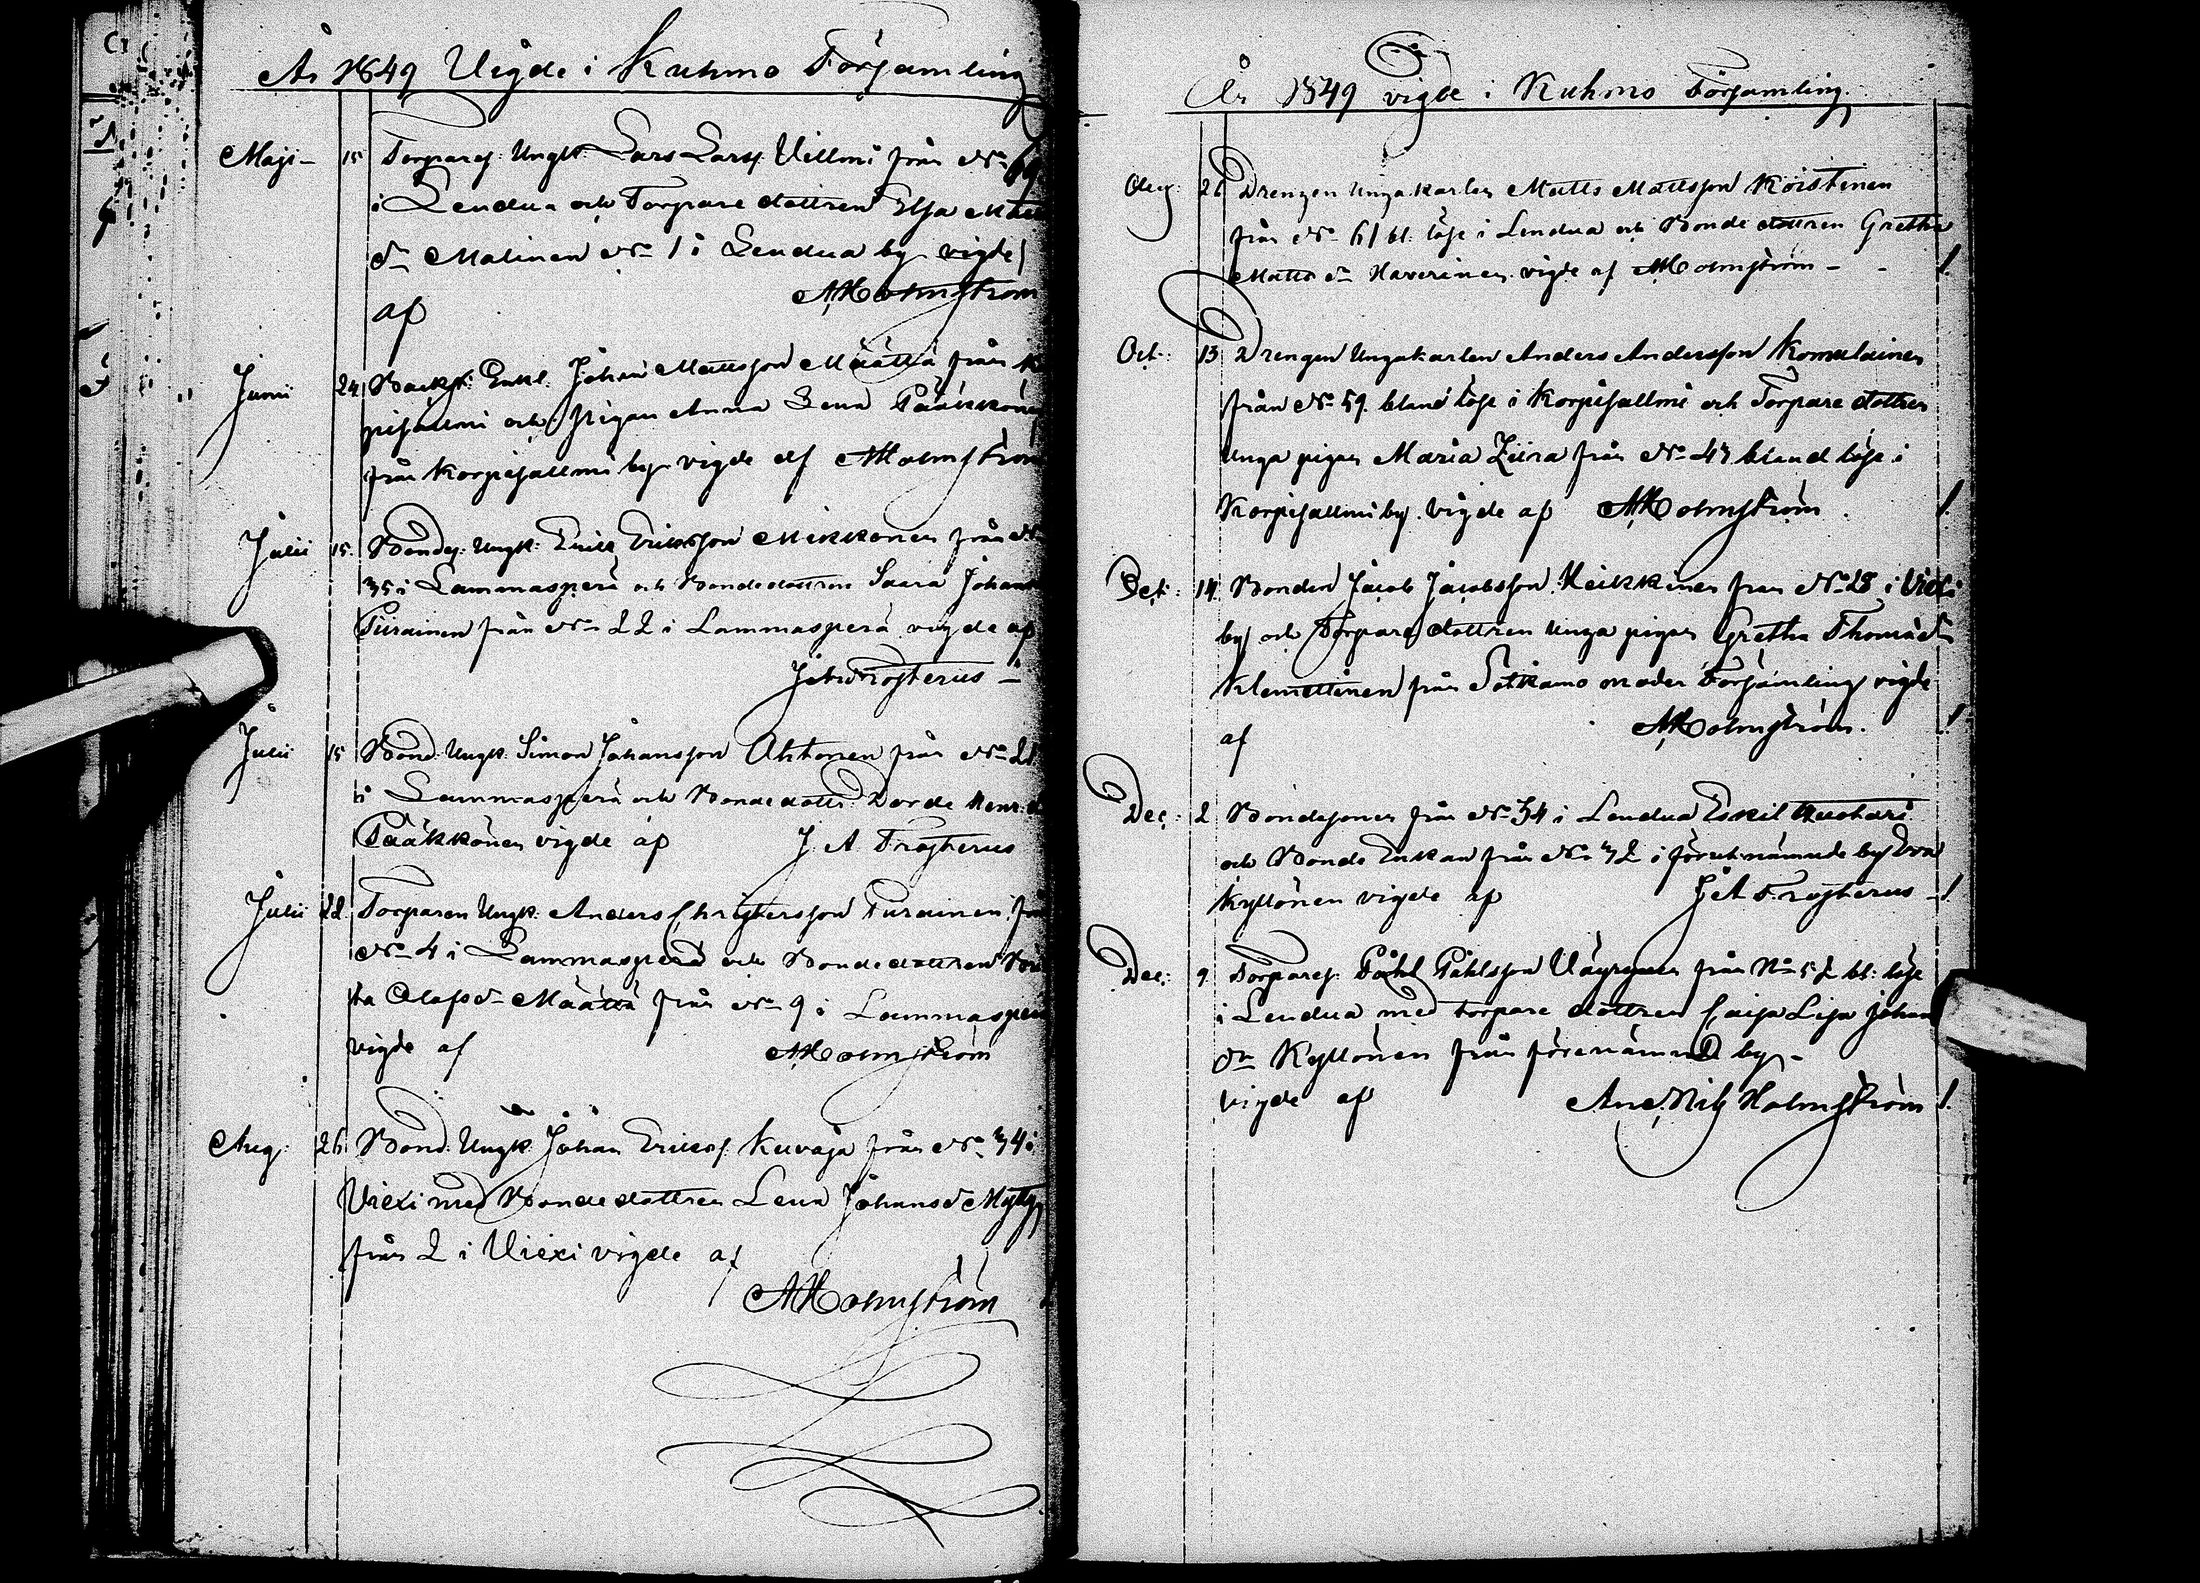 År 1849 Vigde i Kuhmo Församling
Maji 15 Torpares. Ungk. Lars Larss. Villmi från No 69
i Lendua och Torpare dottren Elsa Matts
dr Malinen No 1 i Lendua by vigde
af AHolmström
Junii 24 Backst. Enkl. Johan Mattsson Määttä från
pisallmi och pigan Anna Lena Pääkköne
från Korpisallmi by vigde af AHolmström
Julii 15 Bondes. Ungk. Erick Ericsson Mikkonen från No
35 i Lammasperä och Bondedottren Saara Johans
Piirainen från No 22 i Lammasperä vigde af
Joh Frosterus
Julii 15 Bond. Ungk. Simon Johansson Ahtonen från No 21
i Lammasperä och Bondedottr. Dorde Henr. d
Pääkkönen vigde af J. A Frosterus
Julii 22 Torparen Ungk. Anders Christersson Purainen från
No 4 i Lammasperä och Bondedottren Bri
ta Olafsdr Määttä från No 9 i Lammasperä
vigde af AHolmström
Aug. 26 Bond. Ungk. Johan Erikss. Kuvaja från No 34 i
Viexi med Bondedottren Lena Johansd
från 2 i Viexi vigde af
AHolmström
År 1849 vigde i Kuhmo Församling
Aug. 26 Drengen Ungakarlen Matts Mattsson Koistinen
från No 61 bl. löse i Lendua och Bonde dottren Gretha
Matts dr Haverinen vigde af AHolmström - - 1.
Oct. 13 Drengen Ungakarlen Anders Andersson Komulainen
från No 59. bland löse i Korpisallmi och Torpare dottren
unga pigan Maria Ziira från No 47 bland löse i
Korpisallmi by. vigde af AHolmström. 1.
Oct. 14 Bonden Jacob Jacobsson Heikkinen från No 28 i Viexi
by och Torpare dottren unga pigan Gretha Thomædr
Klemettinen från Sotkamo moder Församling vigde
af AHolmström. 1.
Dec. 2 Bondesonen från No 34 i Lendua Eskil
och Bonde Enkan från No 32 i förutnämnde by Eva
Kyllönen vigde af J A Frosterus - 1.
Dec. 9. Torpares. Påhl Påhlsson Väyrynen från No 52 bl. löse
i Lendua med torpare dottren Caisa Lisa Johans
dr Kyllönen från förenämnd by -
vigde af And. Nils Holmström 1.